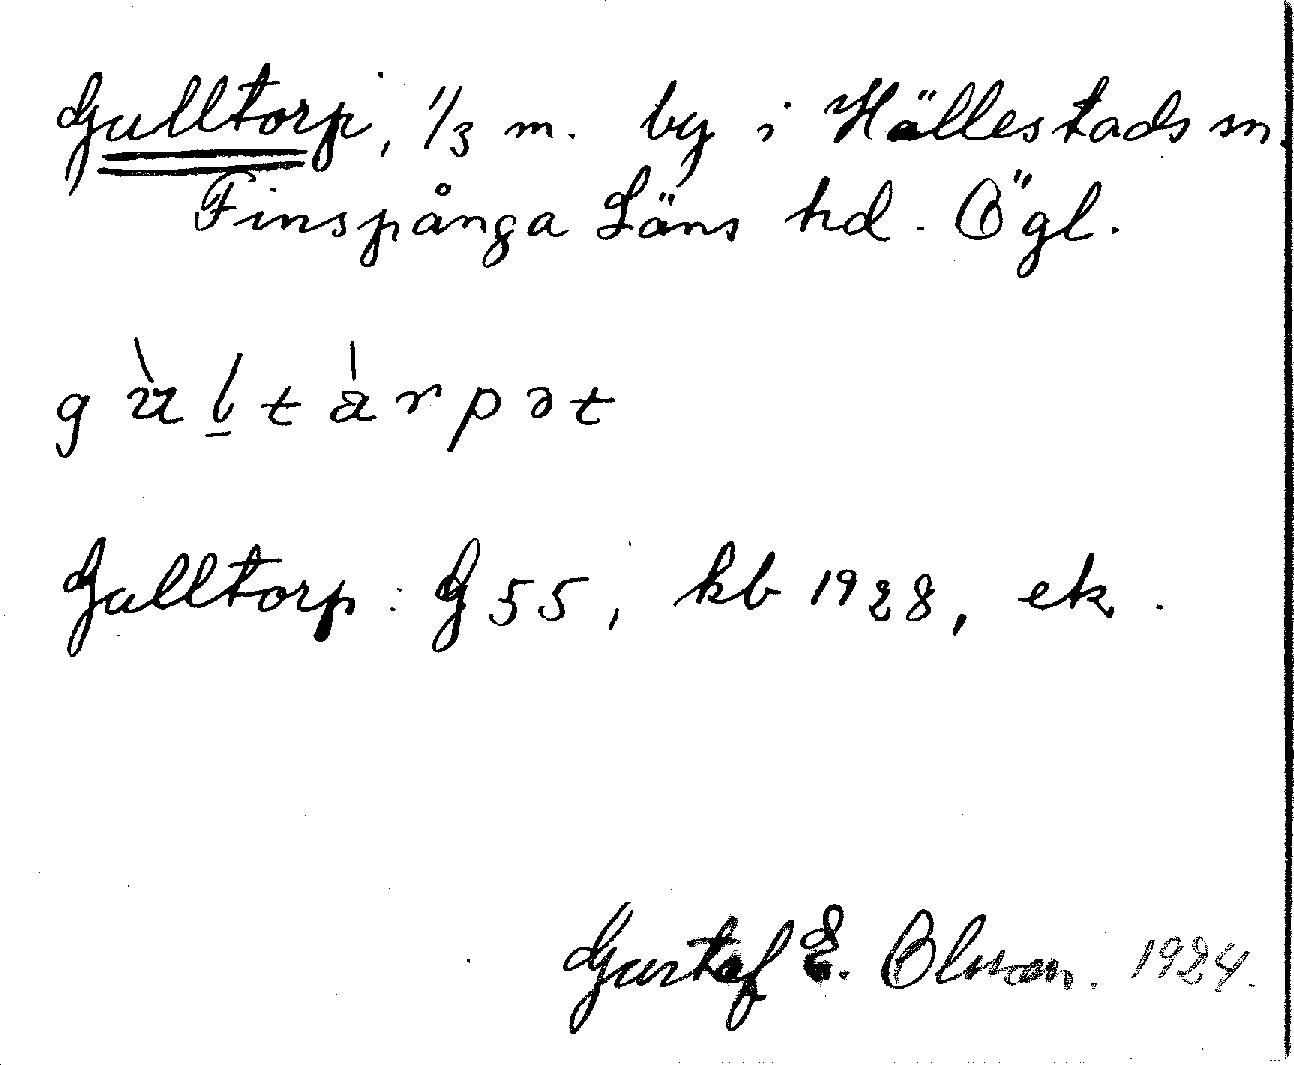 Gulltorp, 1/3 m. by i Hällestads sn.
Finspånga Läns hd. Ögl.
gùḻtàrpət
Gulltorp: G 55, kb 1928, ek.
Gustaf E. Olsson. 1924.